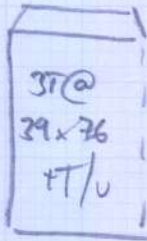 3T@
39x76
+T/U